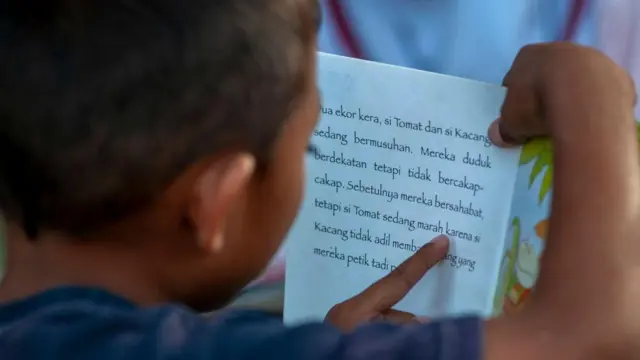 ua ekor kera, si Tomat dan si Kacang
sedang bermusuhan. Mereka duduk
berdekatan tetapi tidak bercakap-
cakap. Sebetulnya mereka bersahabat,
tetapi si Tomat sedang marah karena si
Kacang tidak adil yang
mereka petik tadi